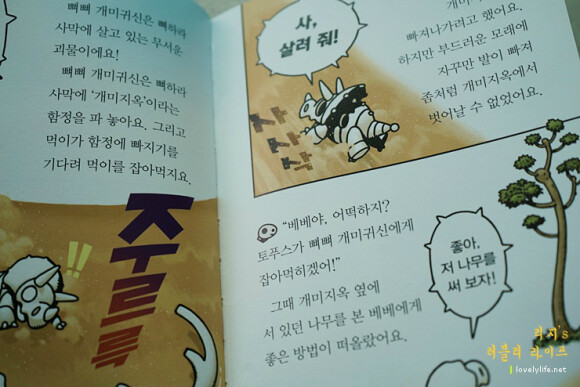 뼈뼈 개미귀신은 뼈하라
사막에 살고 있는 무서운
괴물이에요!
뼈뼈 개미귀신은 뼈하라
사막에 '개미지옥'이라는
함정을 파 놓아요. 그리고
먹이가 함정에 빠지기를
기다려 먹이를 잡아먹지요.
!!
주르륵
사,
살려 줘!
사사삭
개미
빠져나가려고 했어요.
하지만 부드러운 모래에
자꾸만 발이 빠져
좀처럼 개미지옥에서
벗어날 수 없었어요.
"베베야, 어떡하지?
토푸스가 뼈뼈 개미귀신에게
잡아먹히겠어!"
그때 개미지옥 옆에
서 있던 나무를 본 베베에게
좋은 방법이 떠올랐어요.
좋아,
저 나무를
써 보자!
리지's
러블리 라이프
lovelylife.net